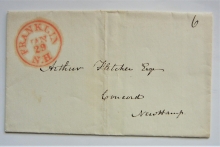 FRANKLIN
JAN
29
N.H
6
Arthur Fletcher Esqr
Concord
New Hamp.